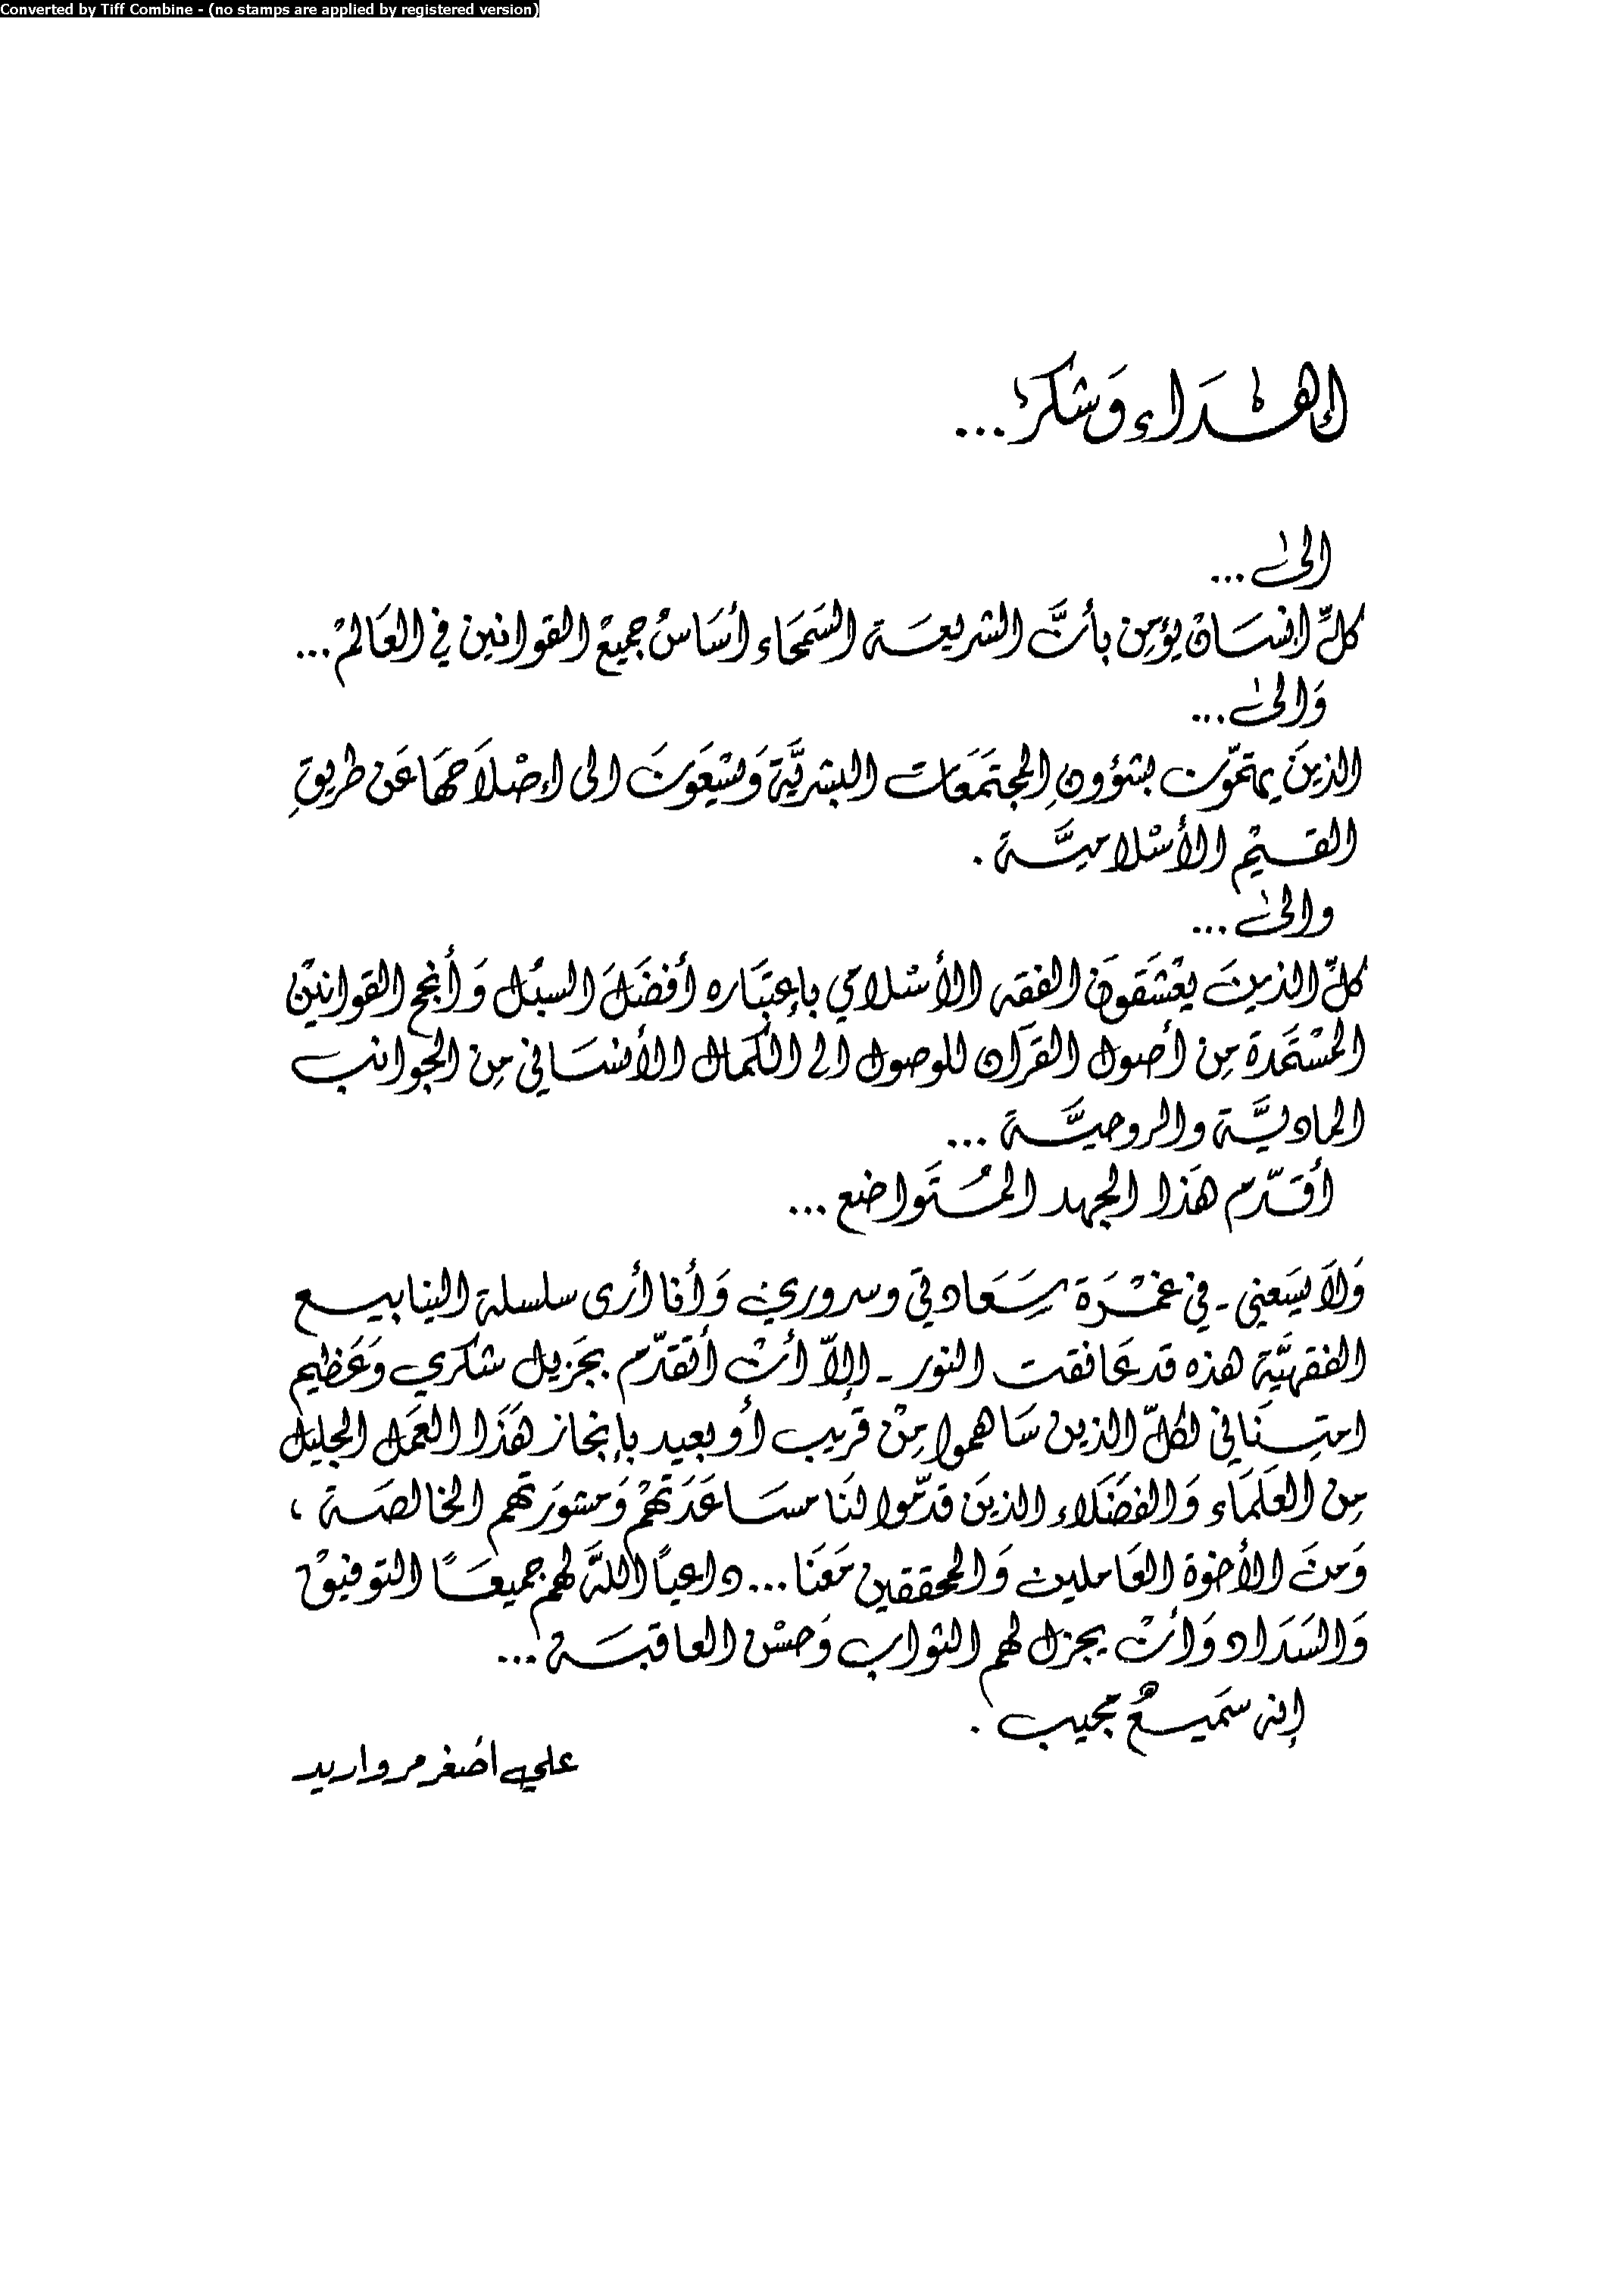 Converted by Tiff Combine - (no stamps are applied by registered version)
إهداء وشكر...
الى...
كلّ انسان يؤمن بأنَّ الشريعة السمحاء أساسُ جميع القوانين في العالم...
وَالى...
الذينَ يهتمّون بشؤونِ المجتمَعات البشريَّة وَيسْعَونَ الى إصْلاَحهَا عَن طريقِ
القيم الأسْلاميَّة .
والى...
كلّ الذينَ يعْشَقونَ الفقه الأسْلامي بإعتبَاره أفضَلَ السبُل وَأنجح القوانيْن
المسْتَمدة مِن أصول القرآن للوصول الى الكمال الأنسَاني مِن الجوانب
الماديَّة والروحيَّة ...
أقدّم هَذا الجهد المُتَواضع ...
وَلاَ يسَعني - في غمْرَة سَعَادتي وسروري وَأنا أرى سلسلة الينابيع
الفقهيَّة هذه قد عَانقت النور - إلاّ أنْ أتقدّم بجَزيل شكري وَعَظيم
امتِنَاني لكلّ الذين سَاهموا مِنْ قريب أو بعيد بإنجاز هَذَا العَمل الجليل
مِن العلَمَاء وَالفضَلاء الذينَ قدّموا لنَا مسَاعَدَتهمْ وَمشورَتهم الخالصَة ،
وَمنَ الأخوة العَاملين وَالمحققين مَعَنا... داعياً اللهَ لهم جميعاً التوفيق
وَالسَدَاد وَأنْ يجزل لهم الثواب وَحسْن العاقبَة...
إنه سَميعٌ مجيب .
علي اصغر مرواريد